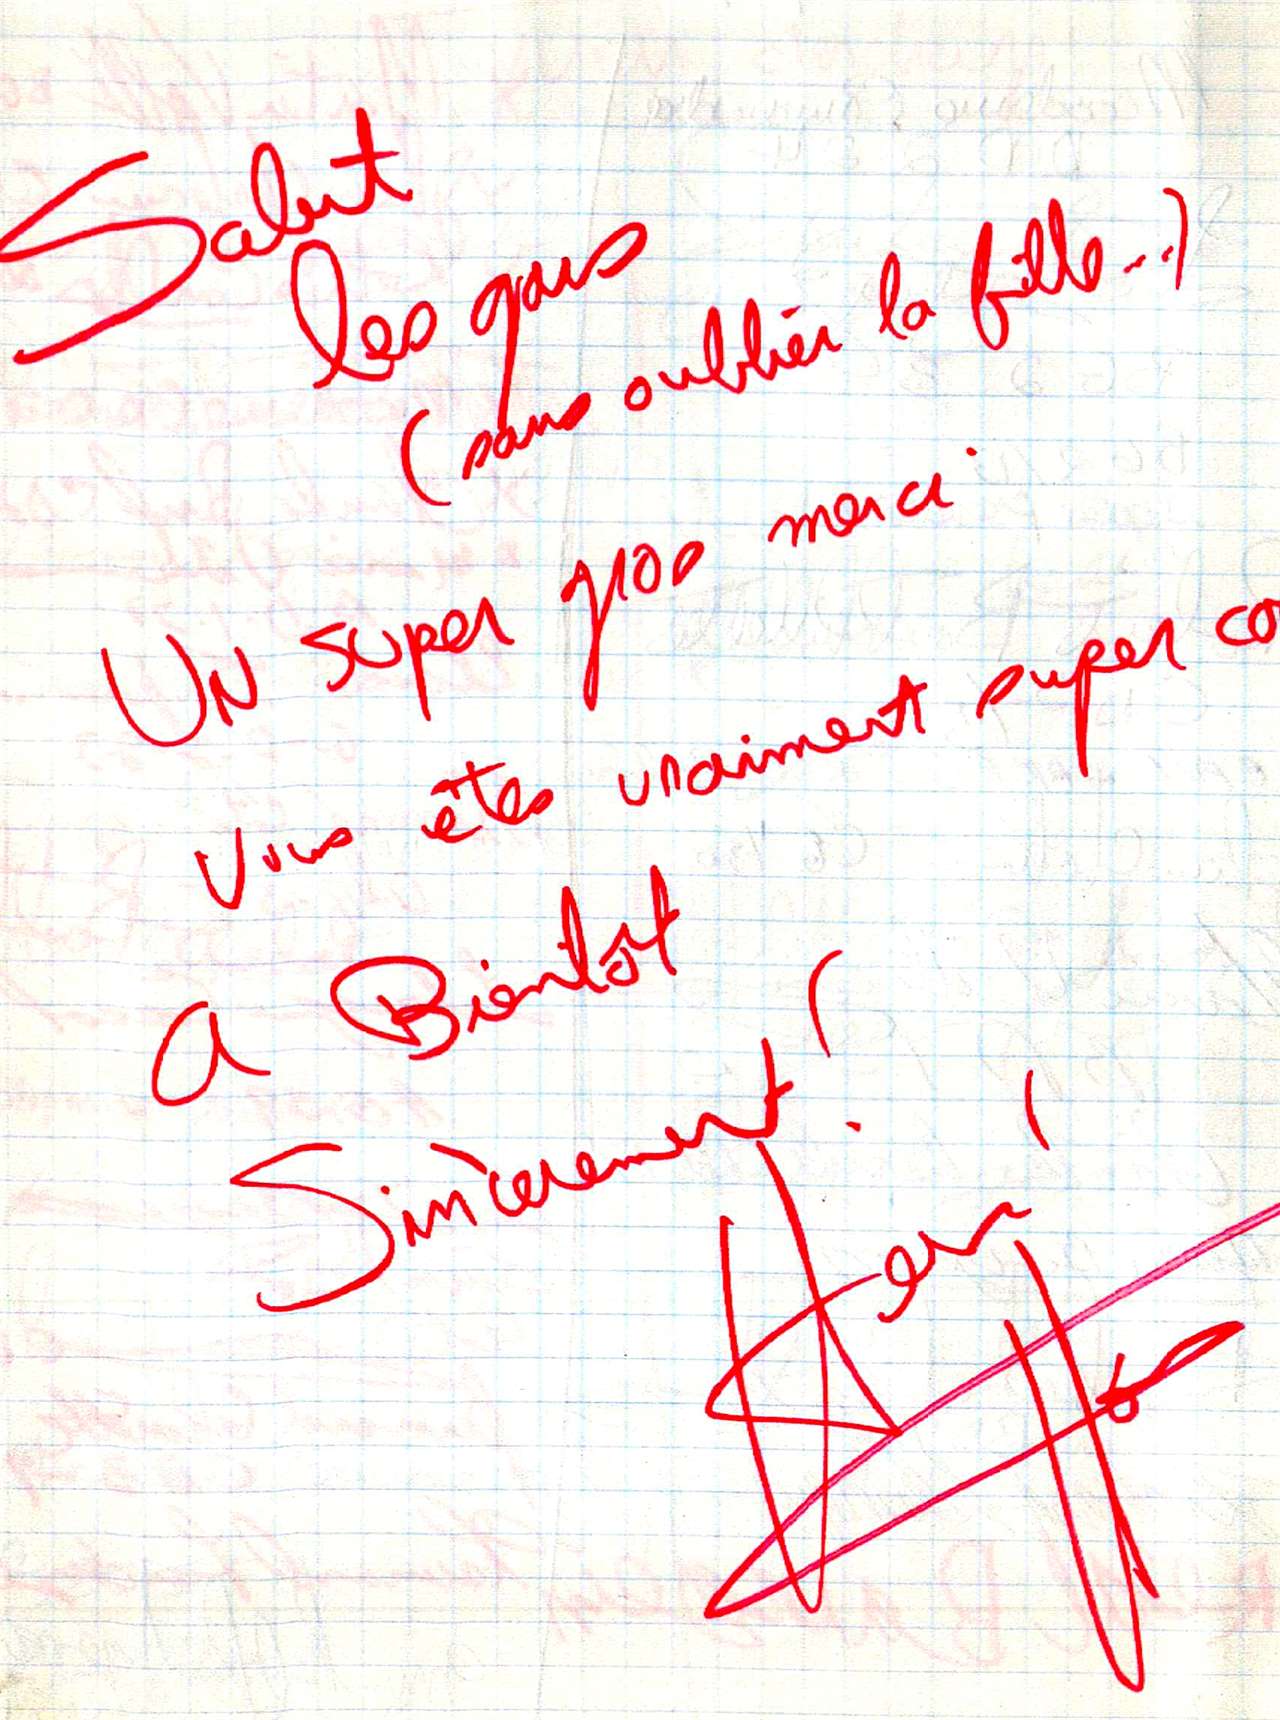 Salut
les gars
(sans oublier la fille...)
Un super gros merci
vous êtes vraiment super
a Bientôt
Sincèrement !